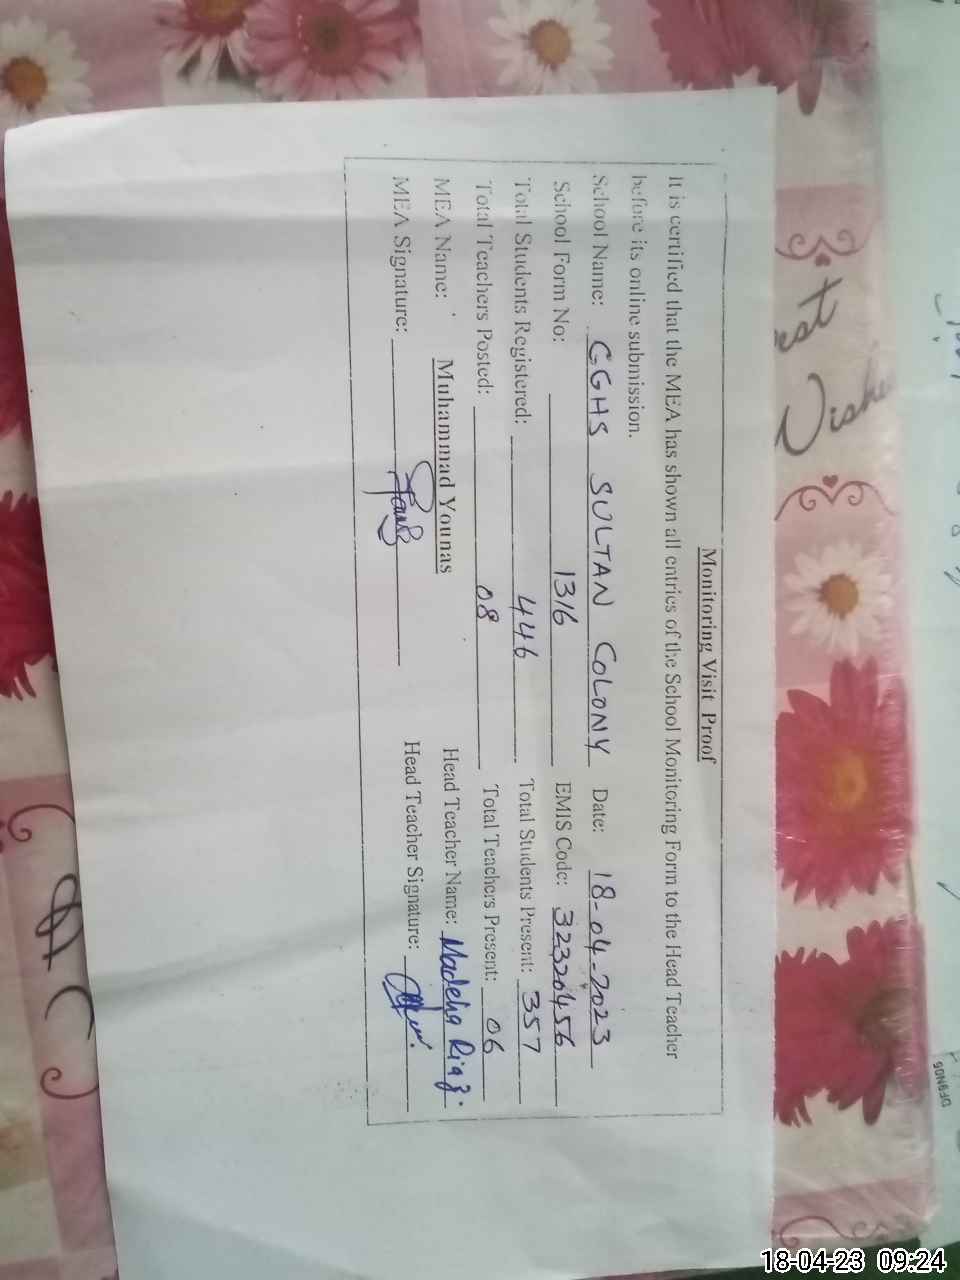 Monitoring Visit Proof
It is certified that the MEA has shown all entries of the School Monitoring Form to the Head Teacher
before its online submission.
School Name: GGHS SULTAN COLONY Date: 18-04-2023
School Form No: 1316 EMIS Code: 32320456
Total Students Registered: 446 Total Students Present: 357
Total Teachers Posted: 08 Total Teachers Present: 06
MEA Name: Muhammad Younas Head Teacher Name: Madeha Riaz.
MEA Signature: Head Teacher Signature:
Wishes
18-04-23 09:24